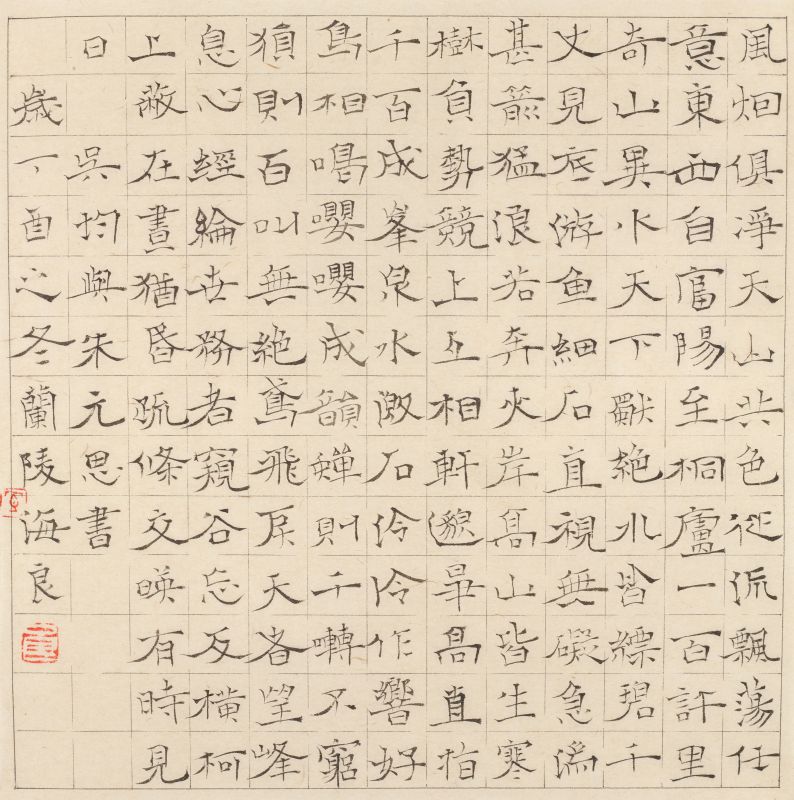 風烟俱淨天山共色從流飄蕩任
意東西自富陽至桐廬一百許里
奇山異水天下獨絕水皆縹碧千
丈見底游魚細石直視無礙急湍
甚箭猛浪若奔夾岸高山皆生寒
樹負勢競上互相軒邈爭高直指
千百成峯泉水激石泠泠作響好
鳥相鳴嚶嚶成韻蟬則千囀不窮
猨則百叫無絕鳶飛戾天者望峰
息心經綸世務者窺谷忘反橫柯
上蔽在晝猶昏疏條交暎有時見
日 吳均與朱元思書
歲丁酉之冬蘭陵海良